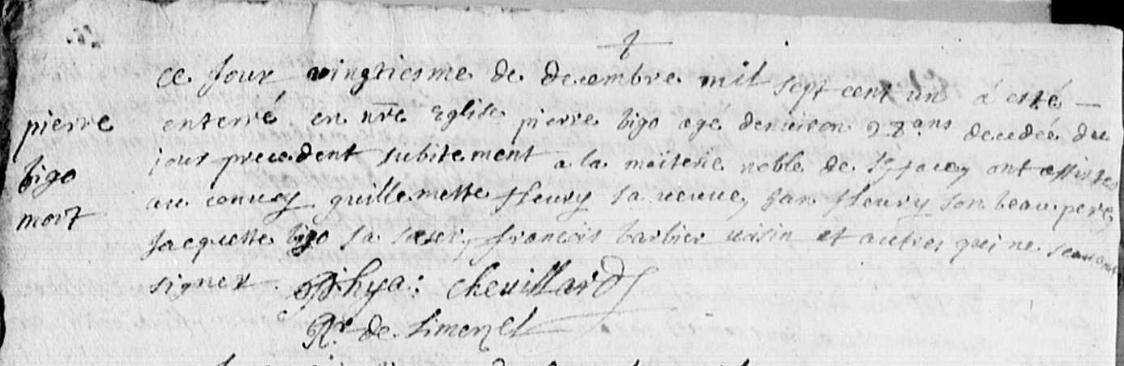 ce jour vingtiesme de decembre mil sept cent un a esté
pierre enterré en nre Eglise pierre bigo agé denviron 28 ans decedée du
bigo jour precedent subitement a la maiterie noble de ont assistes
mort au convoy guillemette fleury sa veuve, jan fleury son beau pere
jacquette bigo sa soeur, francois barbier voisin et autres qui ne scavent
signer. hya: chevillard
Rr de Limerzel